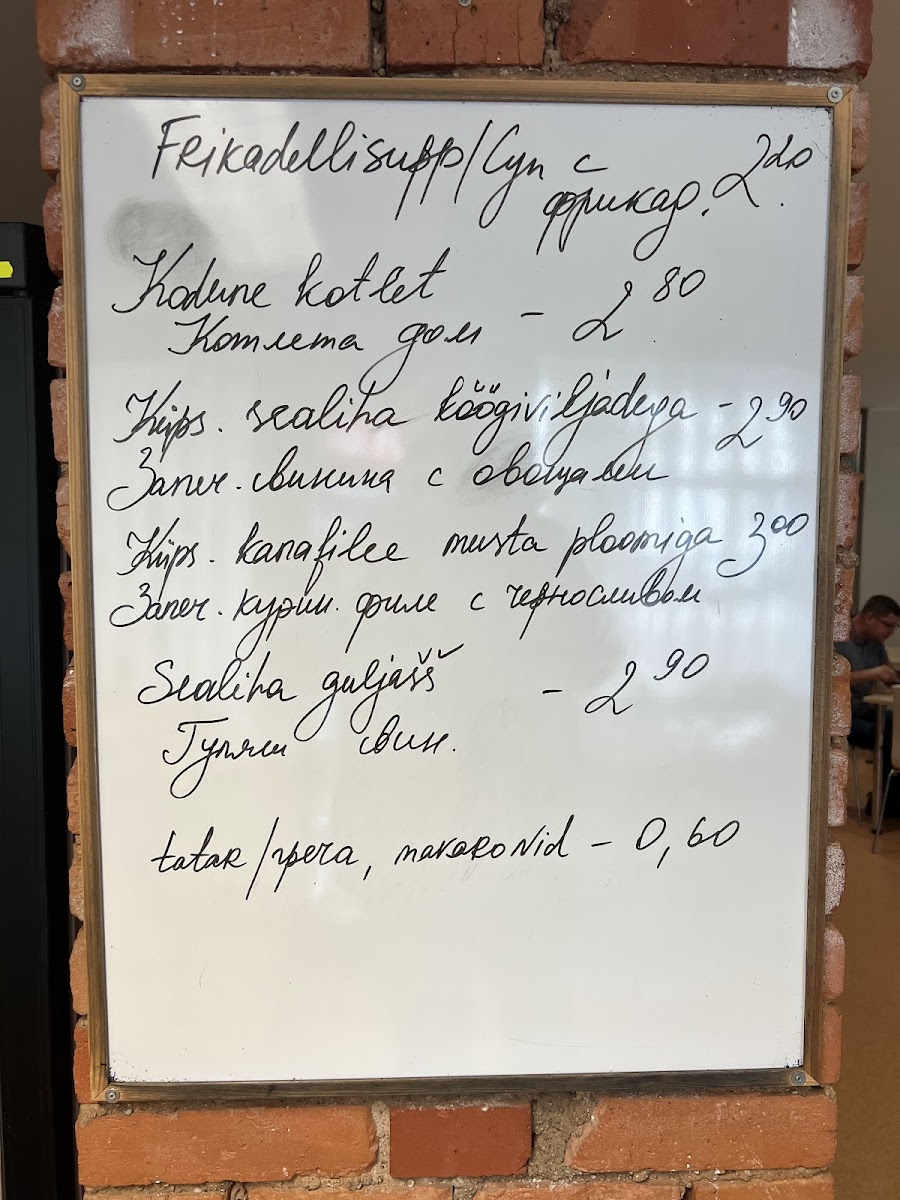 Frikadellisupp/Суп с 2 20
фрикад.
Kodune kotlet
Котлета дом - 2 80
Küps. sealiha köögiviljadega - 2 90
Запеч. свинина с овощами
Küps. kanafilee musta ploomiga 3 00
Запеч. курин. филе с черносливом
Sealiha guljašš - 2 90
Гуляш свин.
tatar/греча, makaronid - 0,60